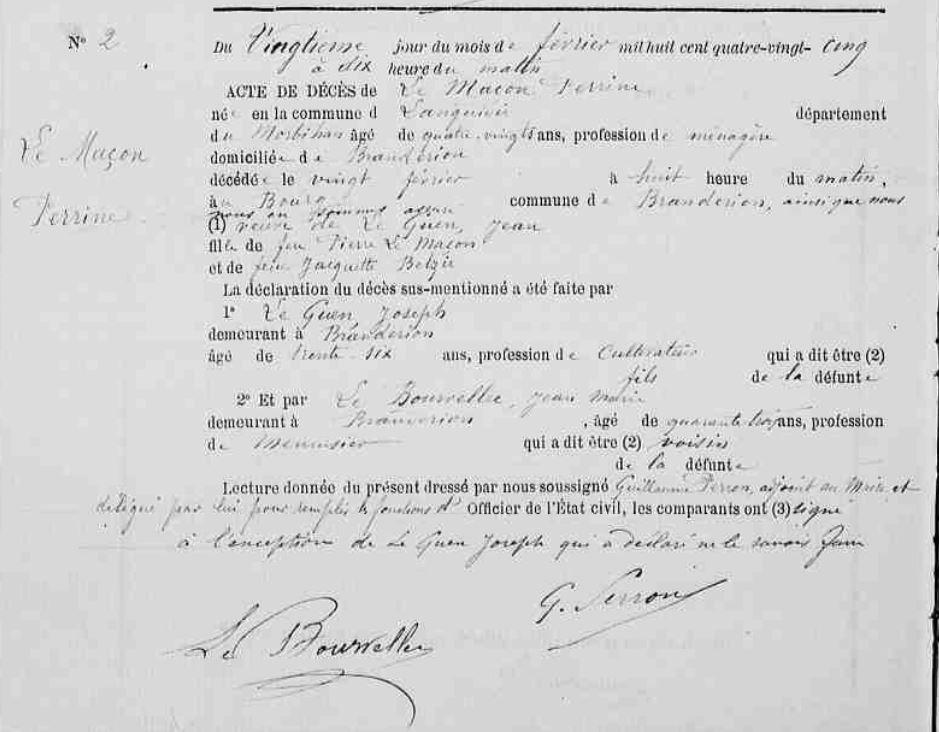 N° 2
Le Maçon
Perrine
Du Vingtième jour du mois de février mil huit cent quatre-vingt-cinq
à dix heure du matin
ACTE DE DÉCÈS de Le Macon Perrine
née en la commune d Languidic département
du Morbihan âgé de quatre-vingts ans, profession de ménagère
domiciliée de Branderion
décédée le vingt février à huit heure du matin,
au Bourg commune de Branderion, ainsi que nous
nous en sommes assuré
(1) veuve de Le Guen, Jean
fille de feu Pierre Le Macon
et de feue Jacquette
La déclaration du décès sus-mentionné a été faite par
1° Le Guen Joseph
demeurant à Branderion
âgé de trente-six ans, profession de Cultivateur qui a dit être (2)
fils de la défunte
2° Et par Le Bourvellec, Jean Marie
demeurant à Branderion, âgé de quarante trois ans, profession
de menuisier qui a dit être (2) voisin
de la défunte
Lecture donnée du présent dressé par nous soussigné Guillaume Perron, adjoint au Maire et
délégué par lui pour remplir les fonctions d' Officier de l'État civil, les comparants ont (3) signé
à l'exception de Le Guen Joseph qui a déclaré ne le savoir faire
G. Perron
Le Bourvellec